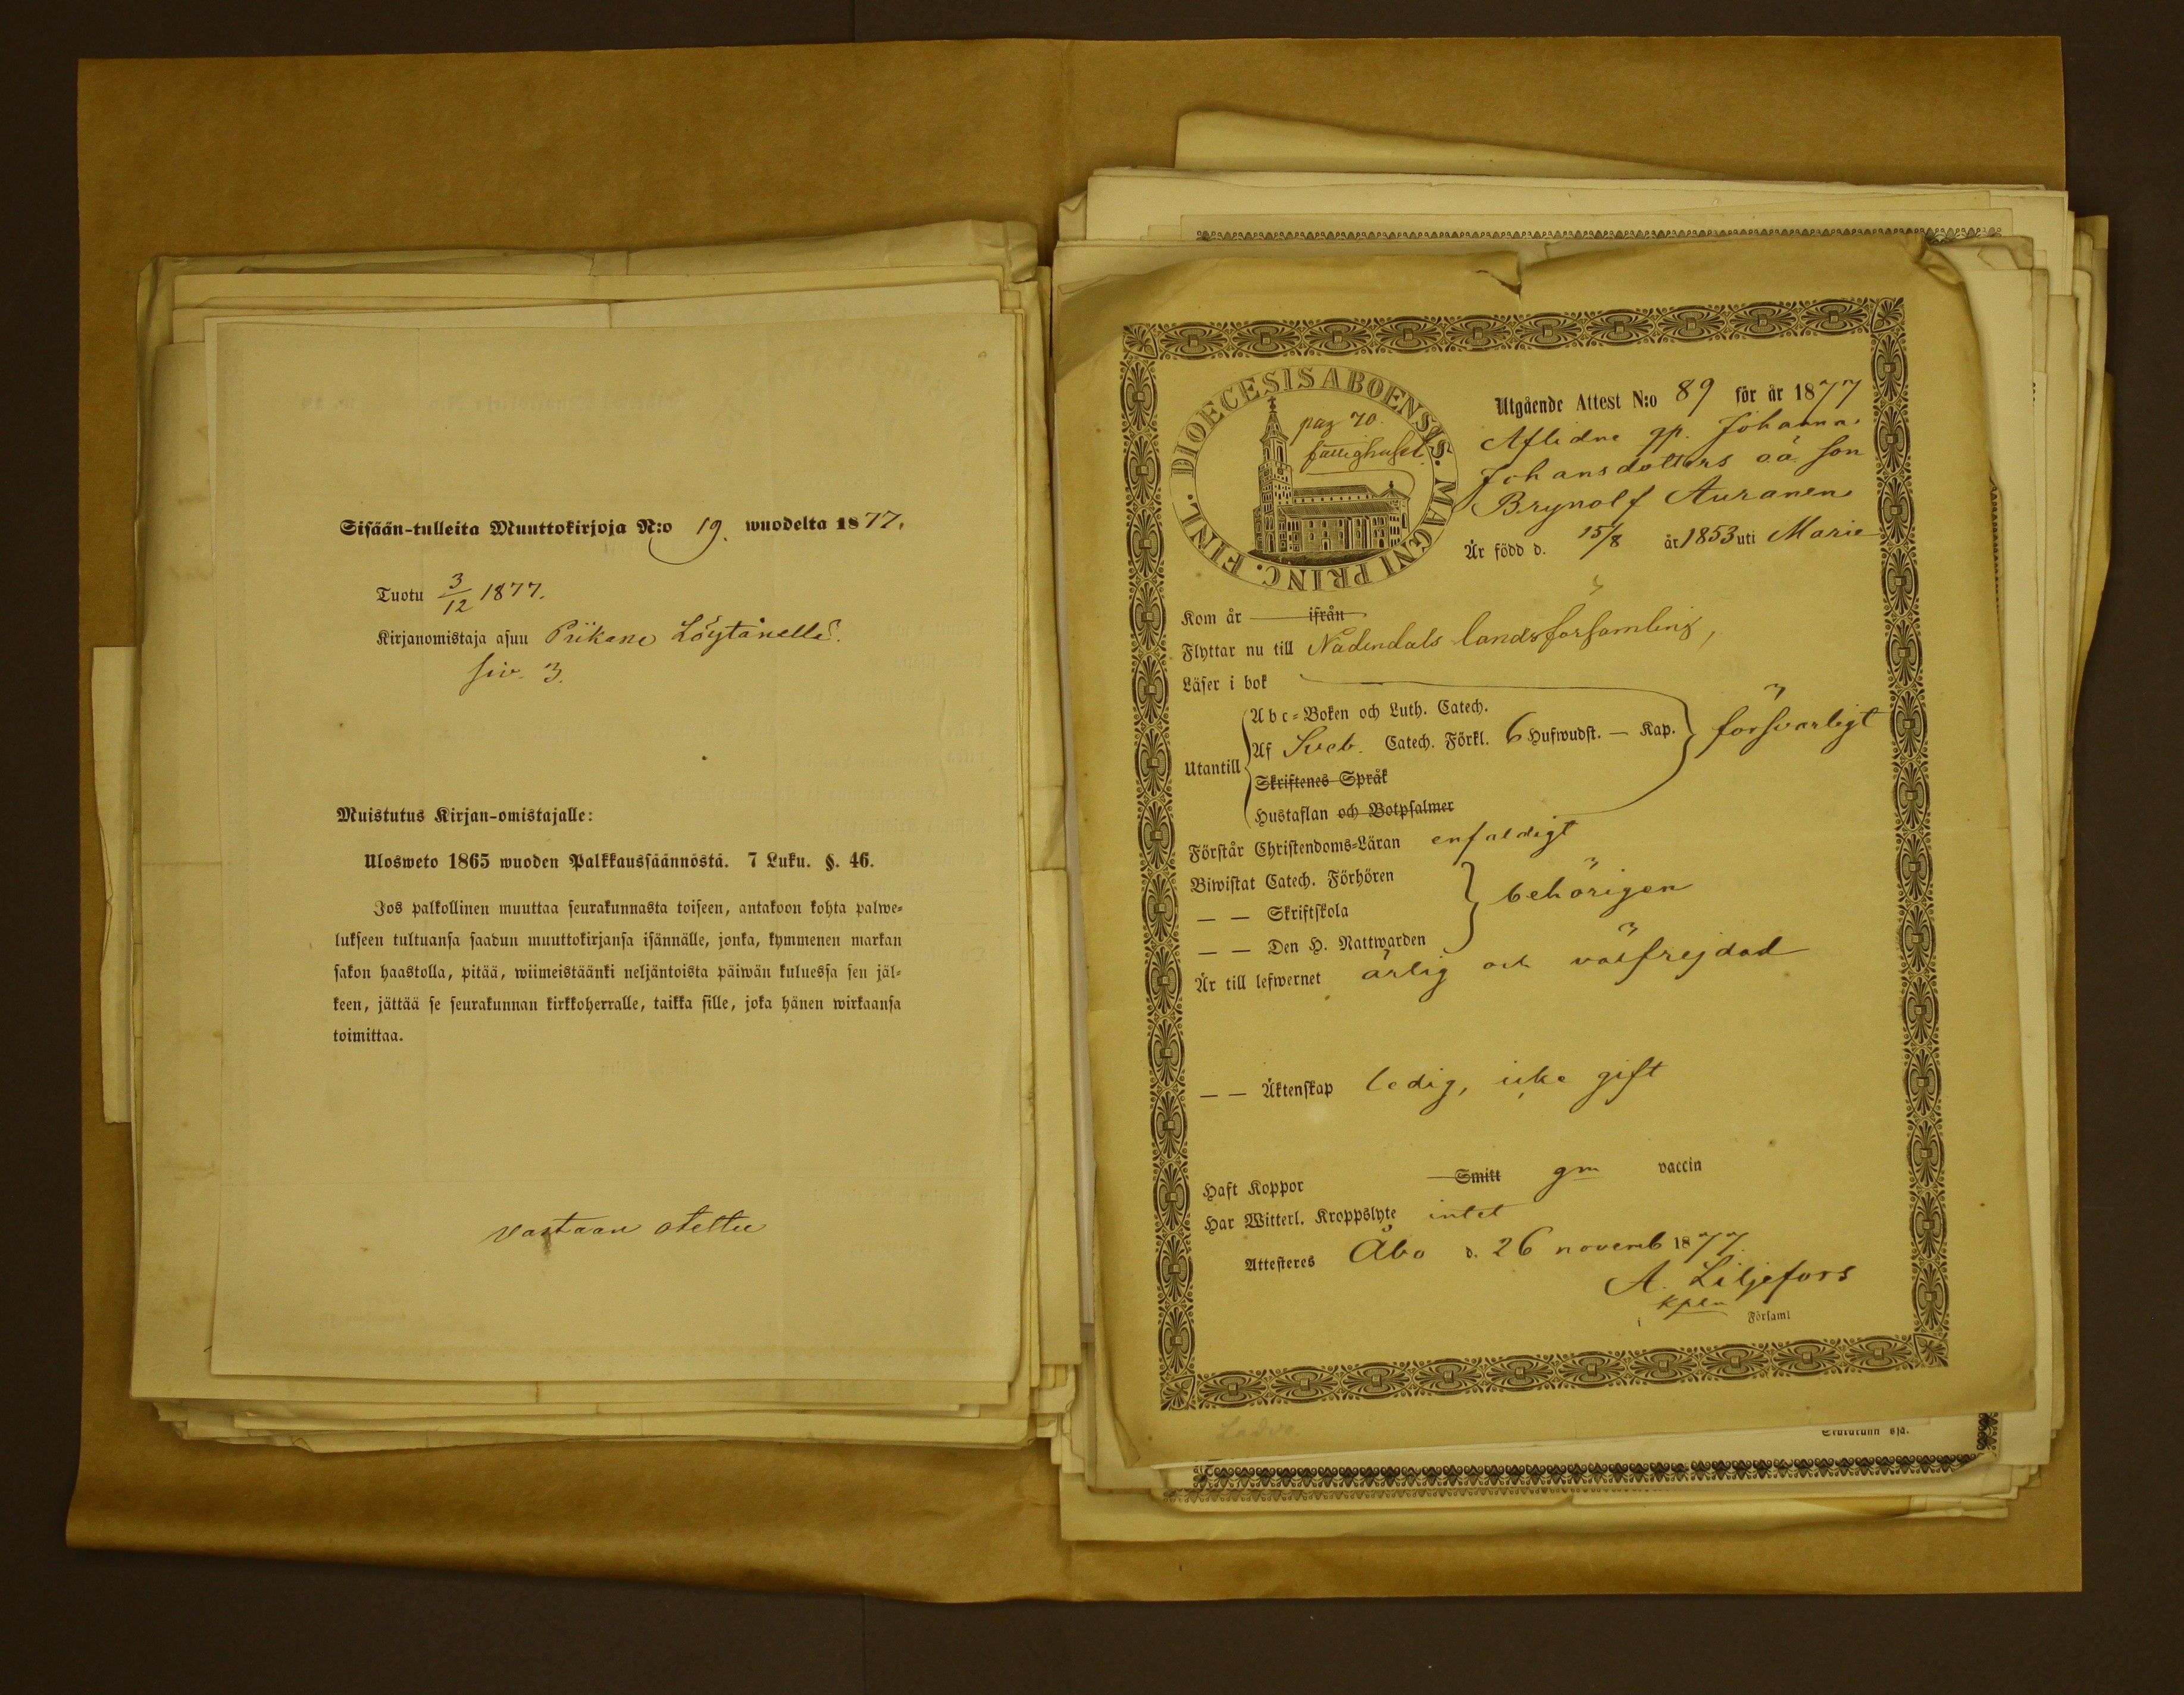 Sisään-tulleita Muuttokirjoja N:o 19. wuodelta 1877.
Tuotu 3/12 1877.
Kirjanomistaja asuu Piikana Löytänellä.
siv. 3.
Muistutus Kirjan-omistajalle:
Ulosweto 1865 wuoden Palkkaussäännöstä. 7 Luku. §. 46.
Jos palkollinen muuttaa seurakunnasta toiseen, antakoon kohta palwe-
lukseen tultuansa saadun muuttokirjansa isännälle, jonka, kymmenen markan
sakon haastolla, pitää, wiimeistäänki neljäntoista päiwän kuluessa sen jäl-
keen, jättää se seurakunnan kirkkoherralle, taikka sille, joka hänen wirkaansa
toimittaa.
vastaan otettu
DIOECESIS ABOENSIS. MAGNI PRINC. FINL.
pag 70.
fattighuset
Utgående Attest N:o 89 för år 1877
Aflidne gp. Johanna
Johansdotters oä son
Brynolf Auranen
Är född d. 15/8 år 1853 uti Marie
Kom år ifrån
Flyttar nu till Nådendals landsförsamling,
Läser i bok
Utantill
Abc-Boken och Luth. Catech.
Af Sveb. Catech. Förkl. 6 Hufwudst. — Kap.
försvarligt
Skriftenes Språk
Hustaflan och Botpsalmer
Förstår Christendoms-Läran enfaldigt
Biwistat Catech. Förhören
— — Skriftskola
behörigen
— — Den H. Nattwarden
Är till lefwernet ärlig och välfrejdad
— — Äktenskap ledig, icke gift
Haft Koppor Smitt gm vaccin
Har Witterl. Kroppslyte intet
Attesteres Åbo d. 26 novemb 1877.
A. Liljefors
kpln
i Förlaml